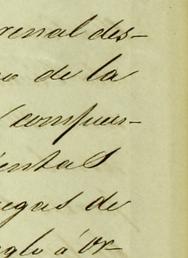 renal des-
no de la
compues-
entas
egas de
eglo á or-